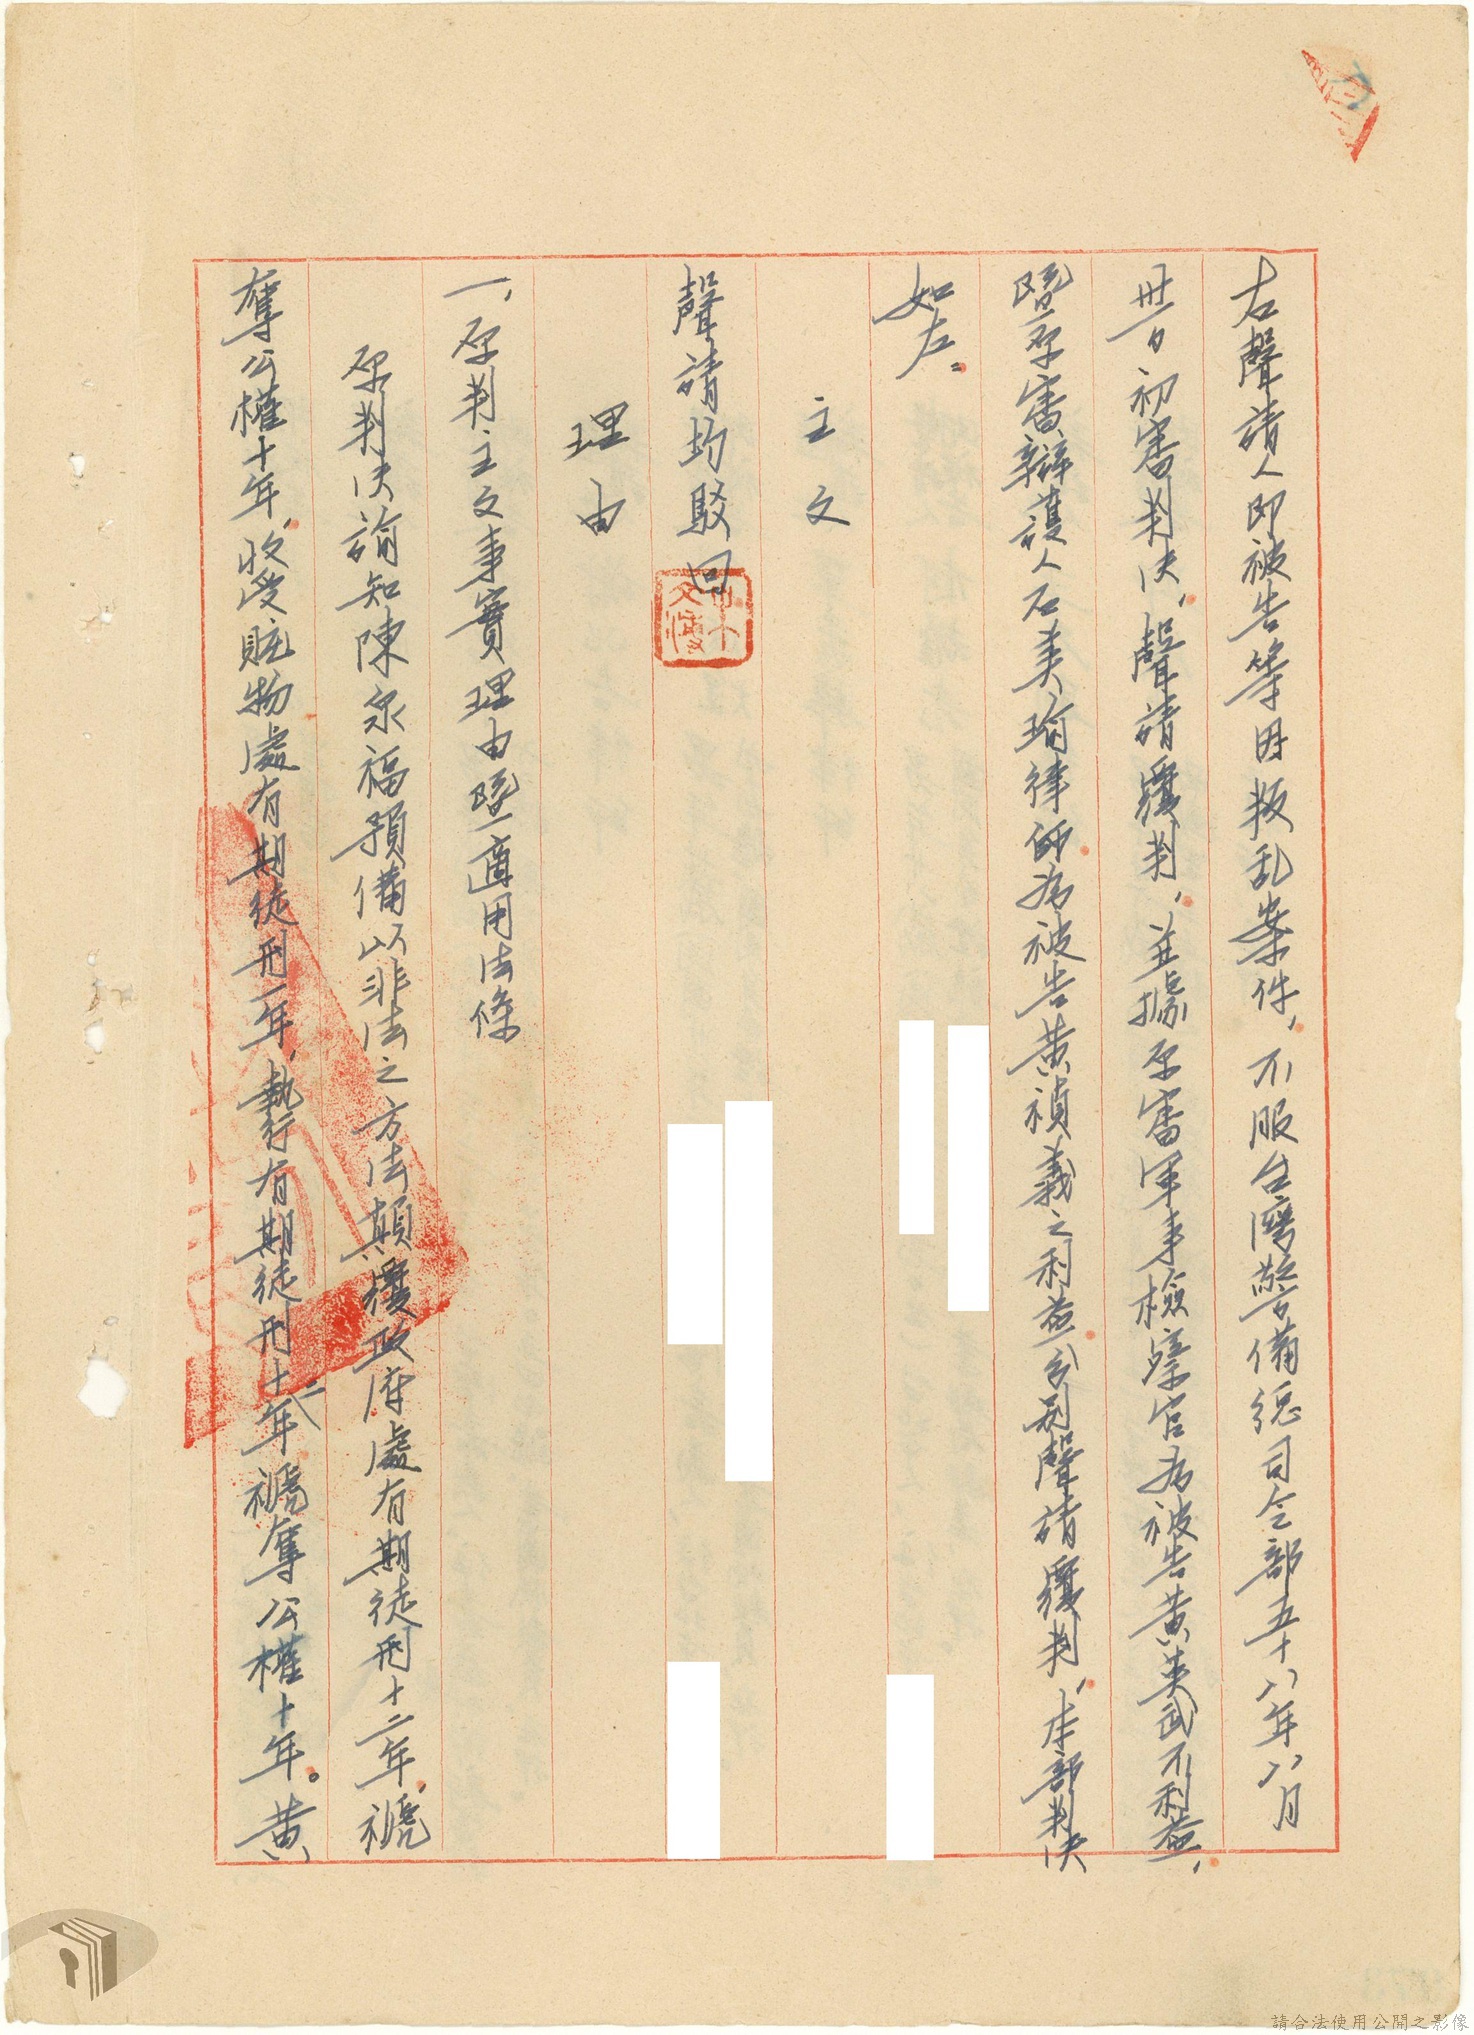 右聲請人即被告等因叛乱案件，不服台灣警備總司令部五十八年八月
卅日初審判決，聲請覆判，並據原審軍事檢察官為被告黃英武不利益，
暨原審辯護人石美瑜律師為被告黃禎義之利益分別聲請覆判，本部判決
如左：
主文
聲請均駁回
理由
一、原判主文事實理由暨適用法條
原判決諭知陳泉福預備以非法之方法顛覆政府處有期徒刑十二年，褫
奪公權十年，收受贓物處有期徒刑一年，執行有期徒刑十二年褫奪公權十年。黃
請合法使用公開之影像